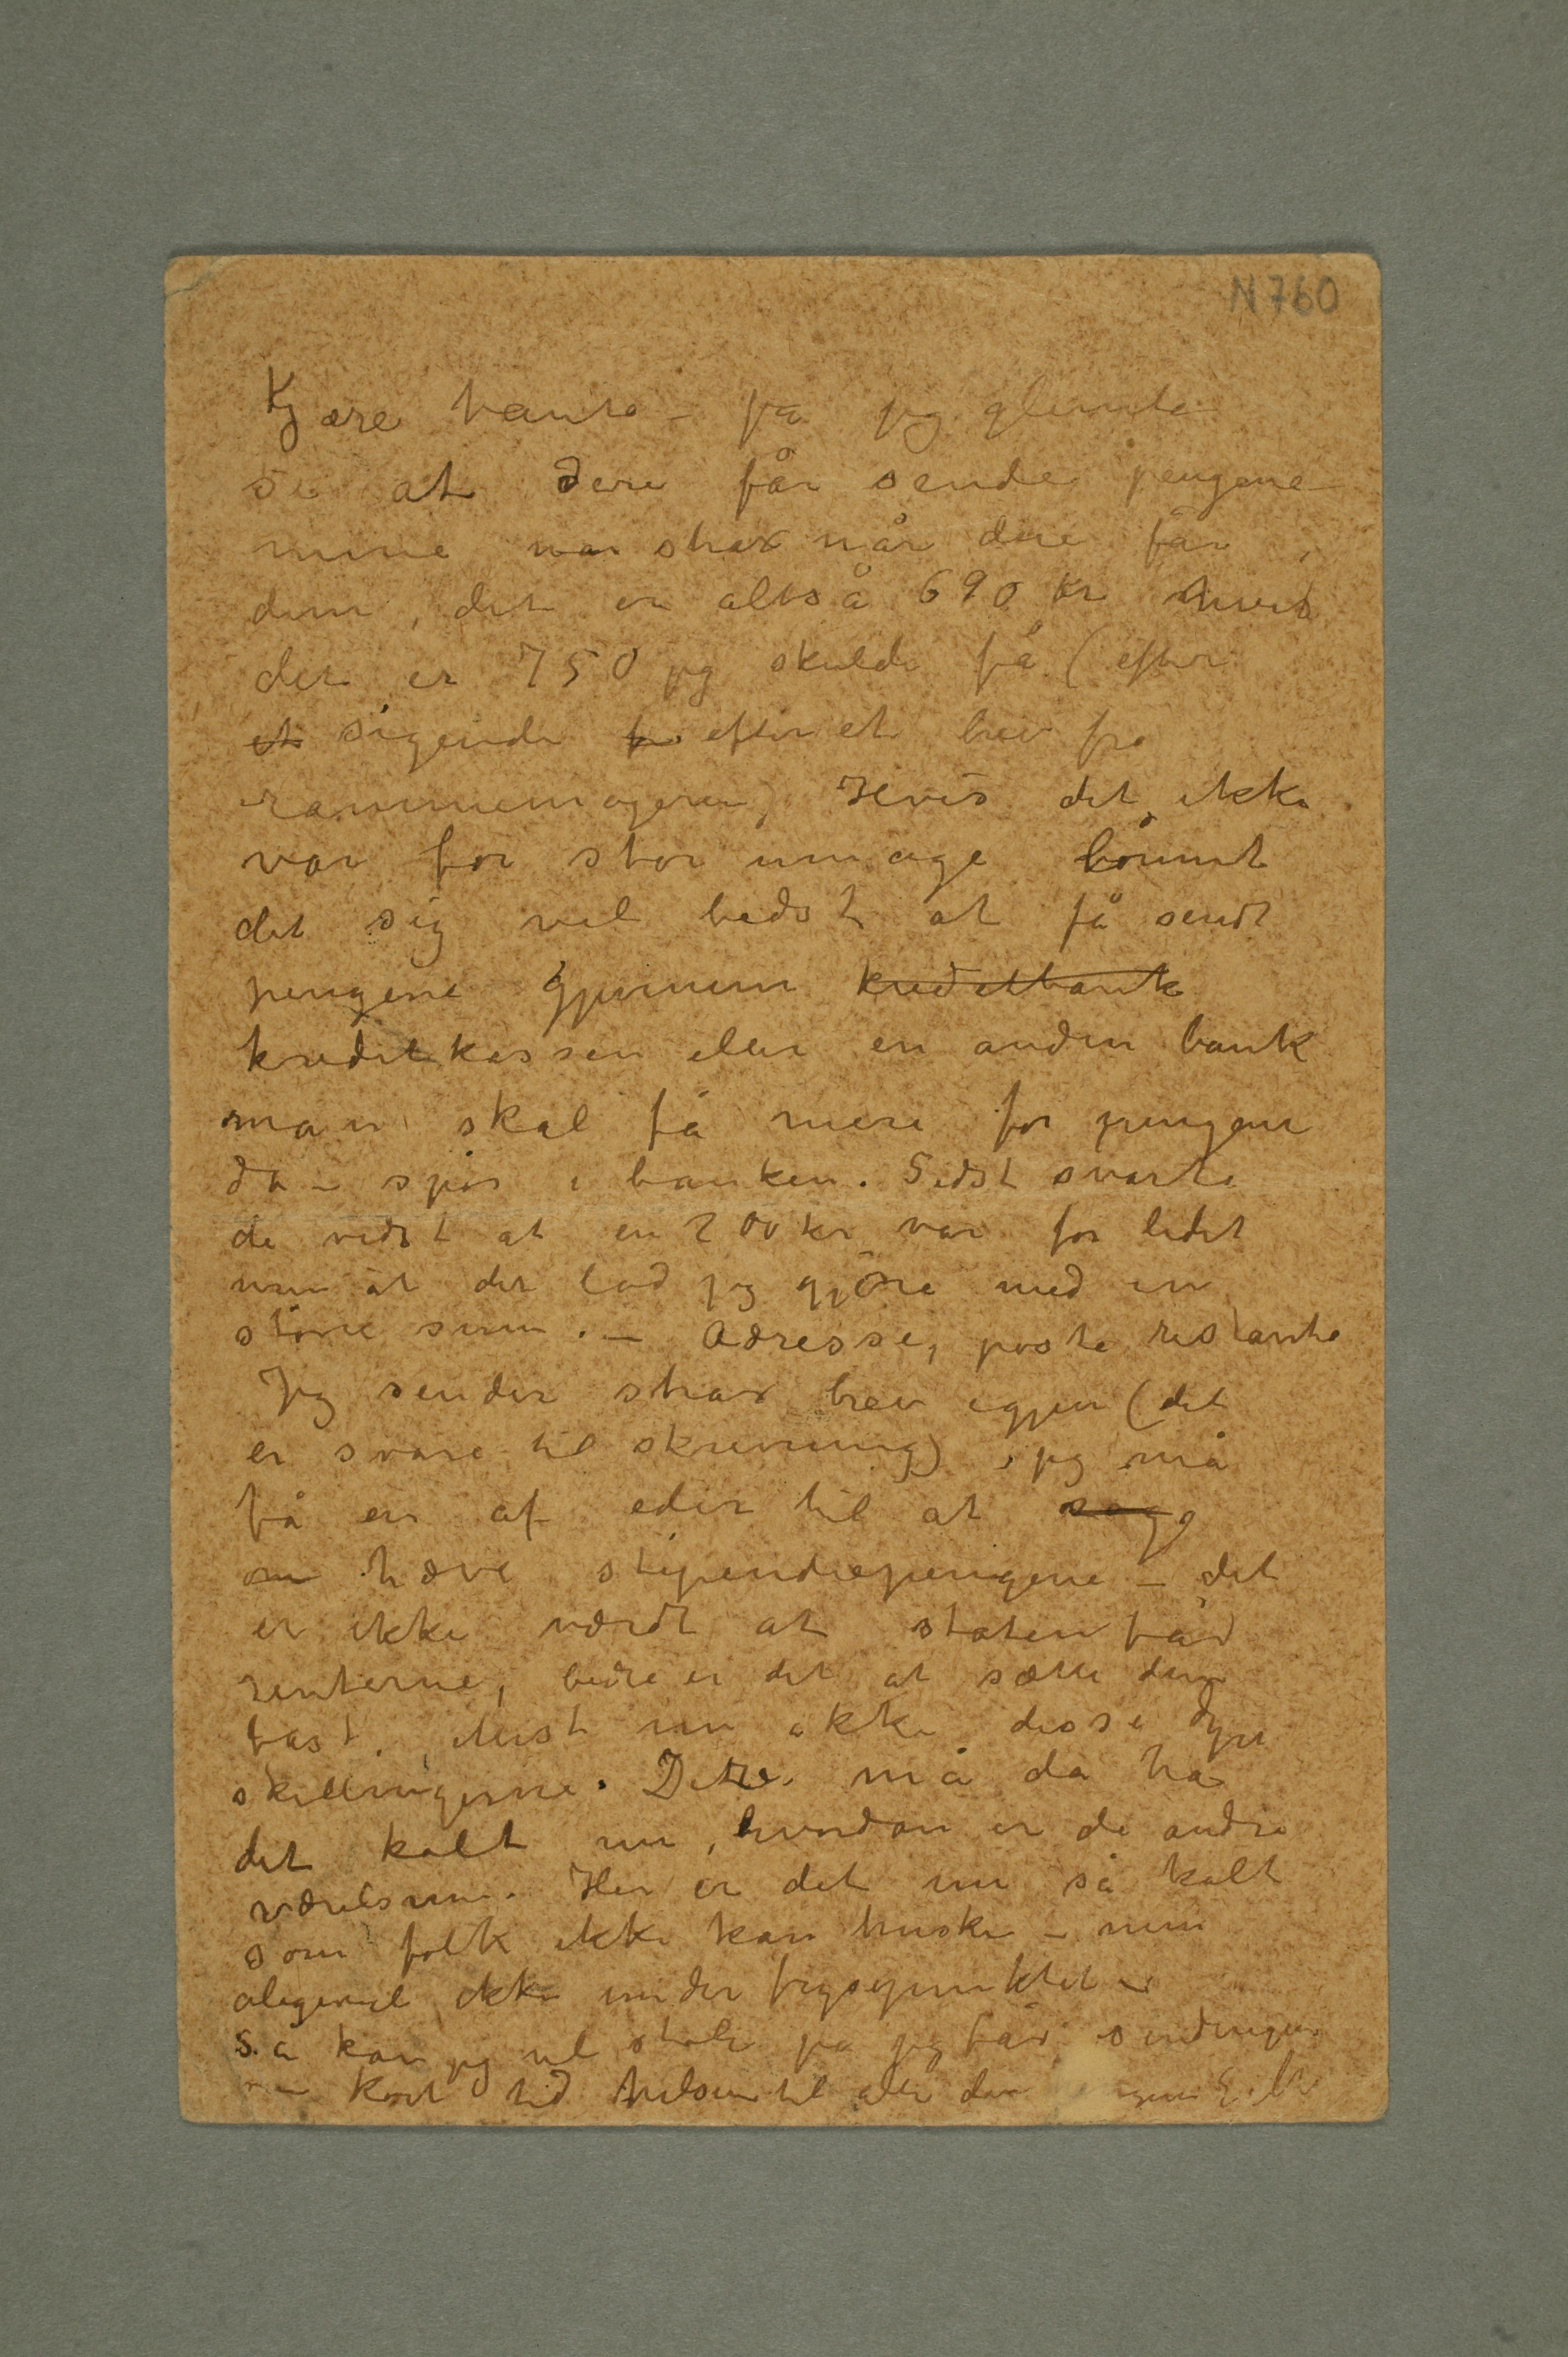 N 760
Kjære tante – ja jeg glemte
si at dere får sende pengene
mine strax når dere får
dem, det er altså 690 kr hvis
det er 750 jeg skulde få (efter
et sigende efter et brev fra
rammemageren) Hvis det ikke
var for stor umage lönnet
det sig vel bedst at få sendt
pengene gjennem kreditbank
kreditkassen eller en anden bank
man skal få mere for pengene
da – spör i banken. Sidst svarte
de vidst at en 200 kr var for lidet
men at det lod sig gjöre med en
större sum. – Adresse, poste restante
Jeg sender strax brev igjen (det
er svare til skrivning), jeg må
få en af eder til at
om hæve stipendiepengene – det
er ikke værdt at staten får
renterne, bedre er det at sætte dem
fast. Mist nu ikke disse dyre
skillingerne. Dere må da ha
det kalt nu, hvordan er de andre
værelserne. Her er det nu så kalt
som folk ikke kan huske – men
aligevel ikke under frysepunktet –
Så kan jeg vel stole på jeg får sendingen
om kort tid hilsen til alle din E. M